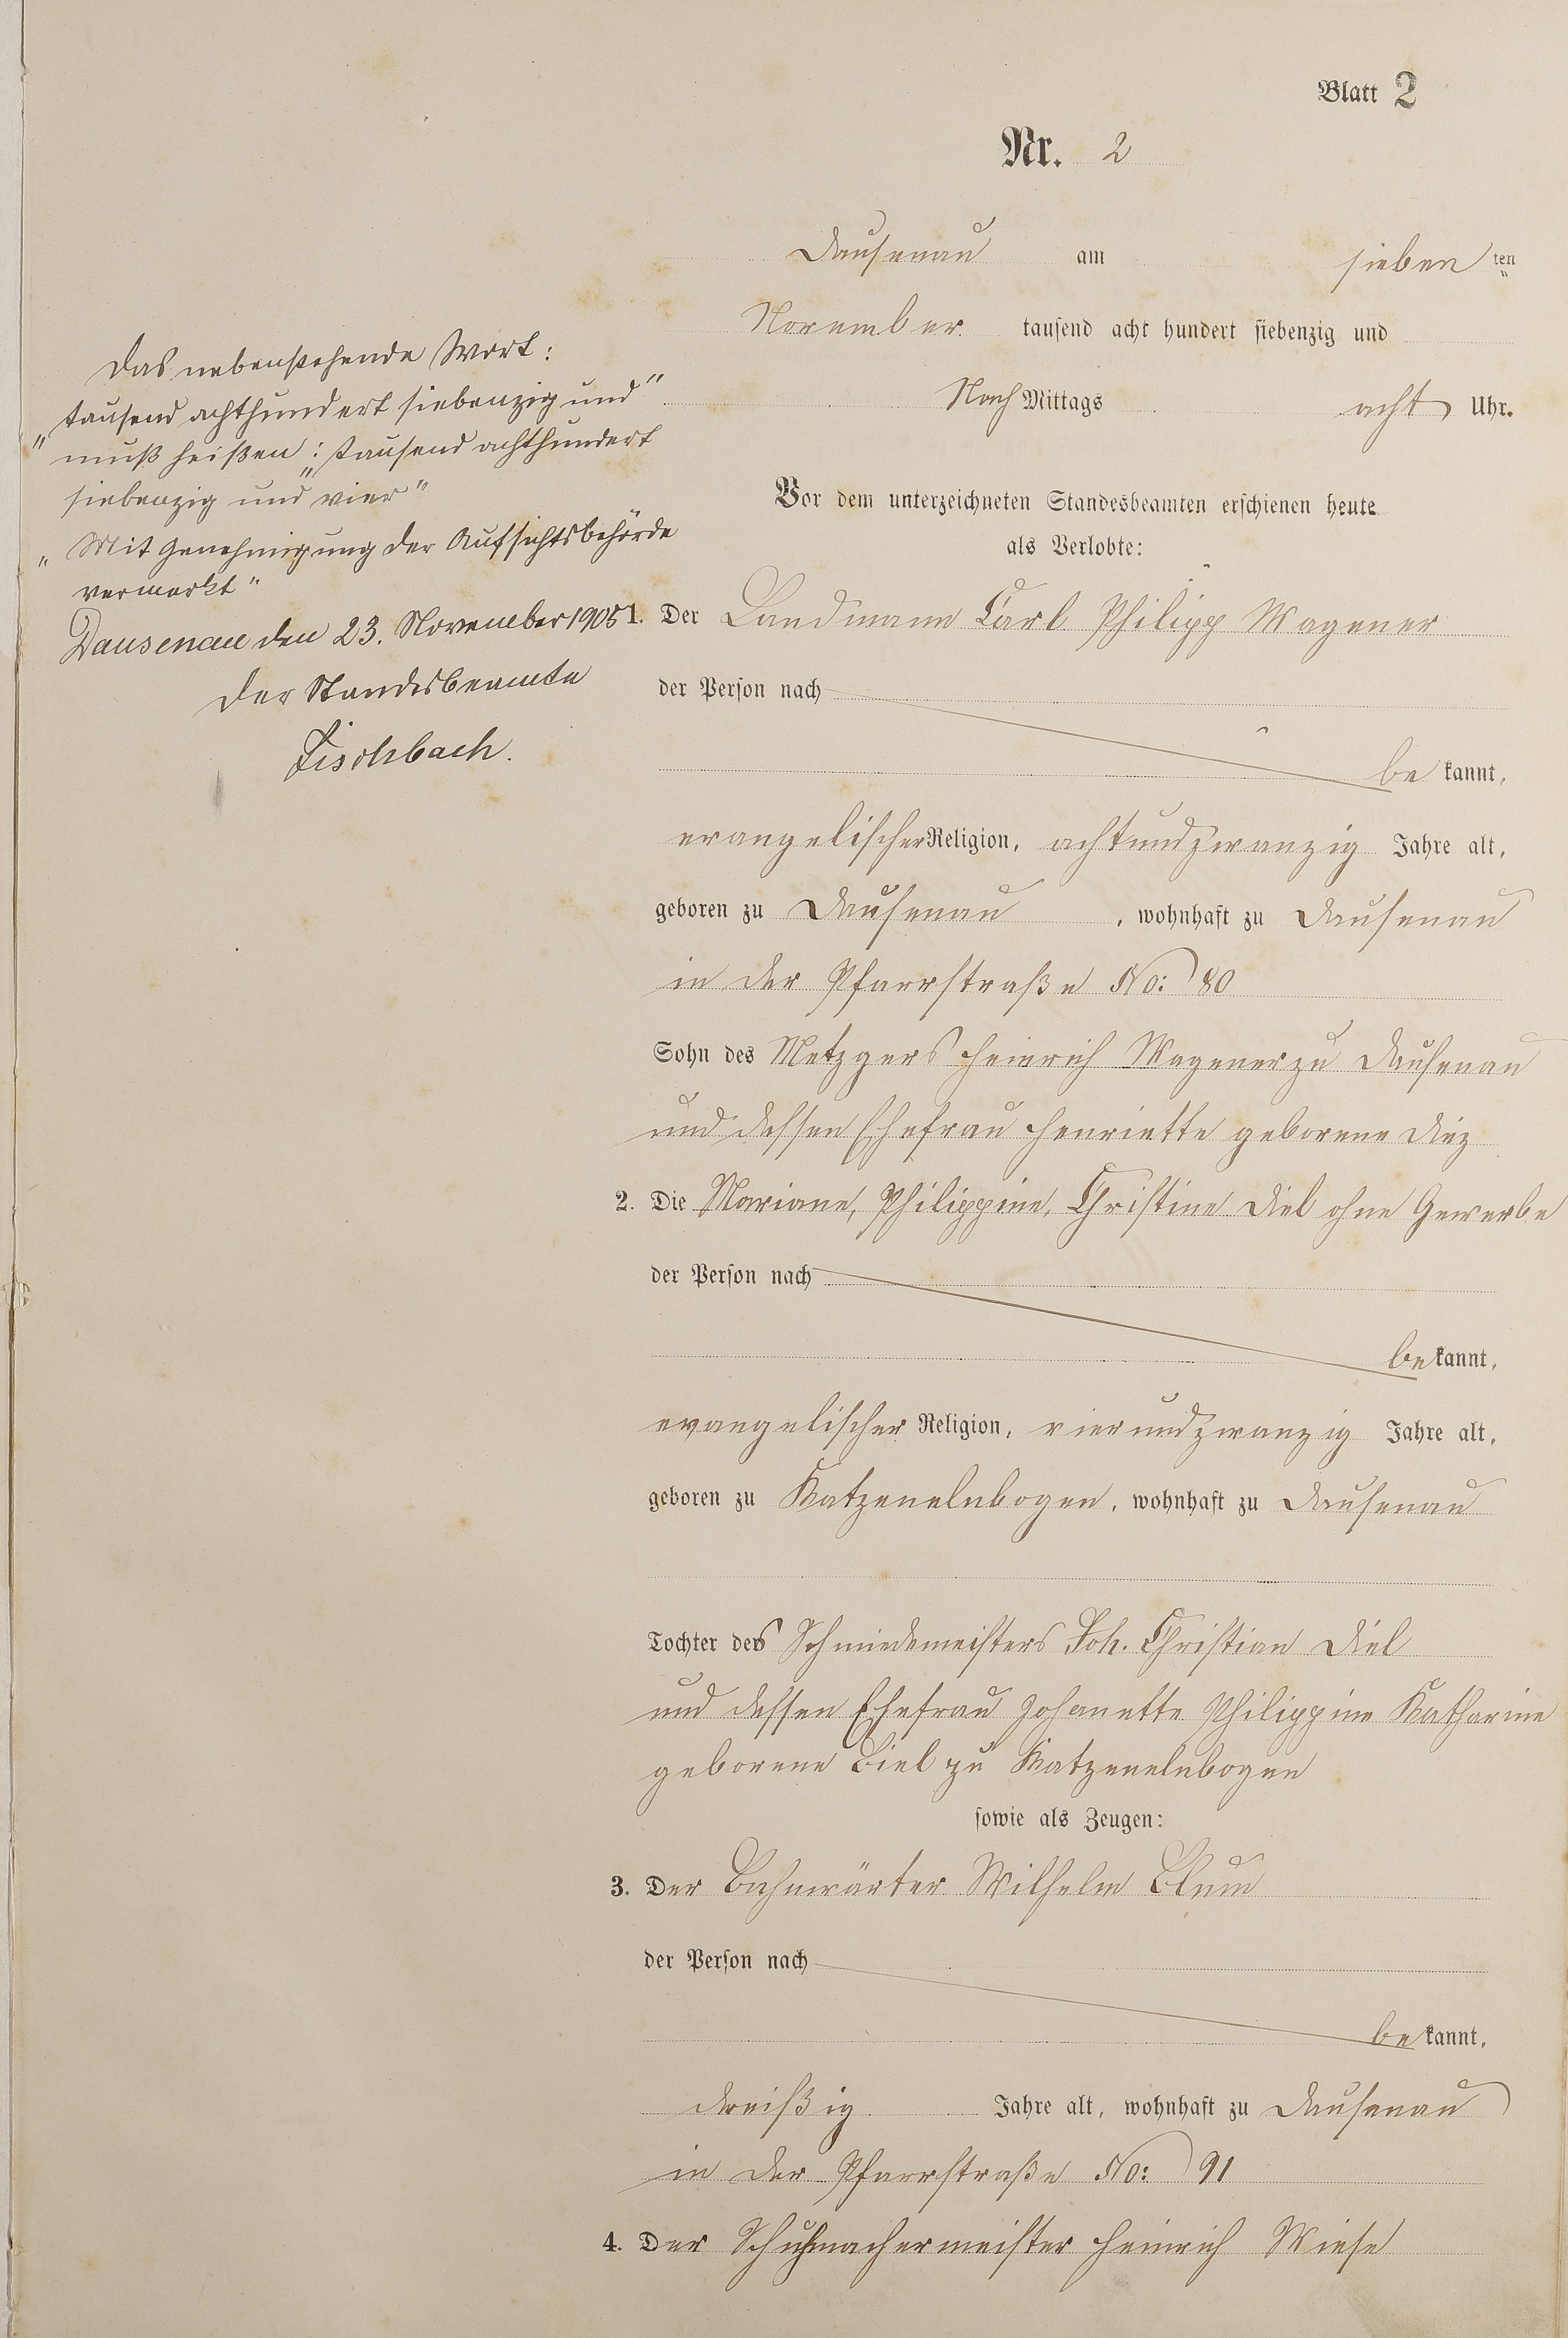 Blatt 2
Nr. 2
Dausenau am sieben ten
November tausend acht hundert siebenzig und
Nach Mittags acht Uhr.
Das nebenstehende Wort:
„tausend achthundert siebenzig und“
muß heißen: „tausend achthundert
siebenzig und vier“
„Mit Genehmigung der Aufsichtsbehörde
vermerkt“
Dausenau den 23. November 1905
Der Standesbeamte
Fischbach.
Vor dem unterzeichneten Standesbeamten erschienen heute
als Verlobte:
1. Der Landmann Carl Philipp Wagener
der Person nach
be kannt,
evangelischer Religion, achtundzwanzig Jahre alt,
geboren zu Dausenau, wohnhaft zu Dausenau
in der Pfarrstraße No: 80
Sohn des Metzgers Heinrich Wagener zu Dausenau
und dessen Ehefrau Henriette geborene Diez
2. Die Mariane, Philippine, Christine Diel ohne Gewerbe
der Person nach
be kannt,
evangelischer Religion, vierundzwanzig Jahre alt,
geboren zu Katzenelnbogen, wohnhaft zu Dausenau
Tochter des Schmiedemeisters Joh. Christian Diel
und dessen Ehefrau Johanette Philippine Katharine
geborene Biel zu Katzenelnbogen
sowie als Zeugen:
3. Der Bahnwärter Wilhelm Blum
der Person nach
be kannt,
dreißig Jahre alt, wohnhaft zu Dausenau
in der Pfarrstraße No: 91
4. Der Schuhmachermeister Heinrich Wiese